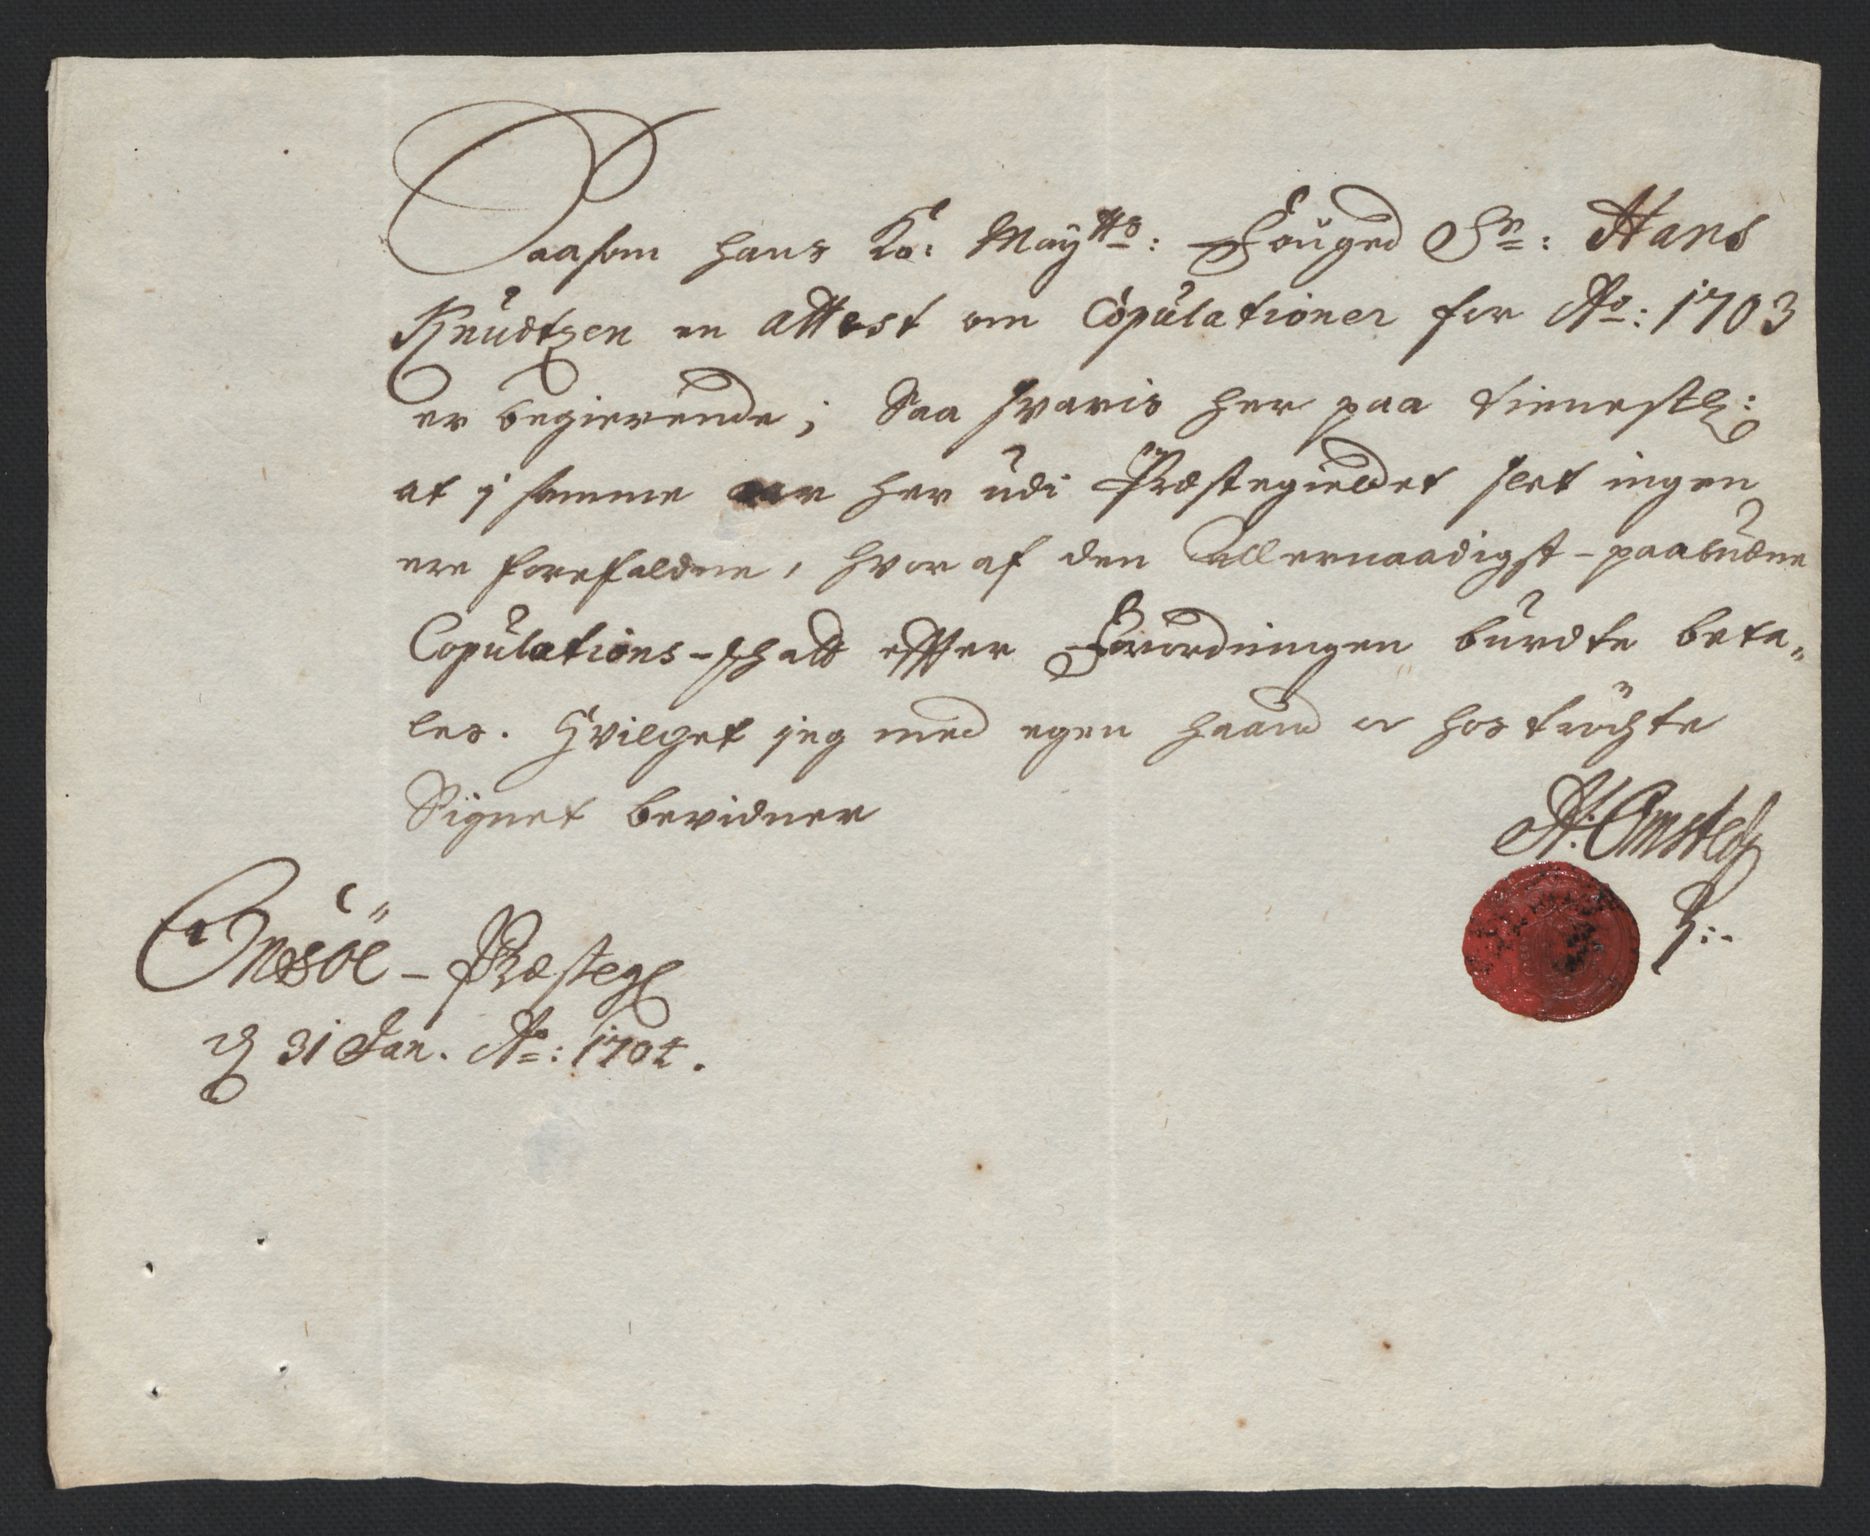 Saasom hans Ko: May^tts: Fouged Sr: Hans
Knudtzen en attest om Copulationer for Ao: 1703
er begierende; Saa svaris her paa tienestl:
at j samme aar her udi Præstegieldet slet ingen
ere forefaldne, hvor af den allernaadigst-paabudne
Copulations-schatt effter Forordningen burdte beta-
les. Hvilchet jeg med egen haand oc hoströchte
Signet bevidner
H: Omsted
Onsöe-Præsteg
d 31 Jan. Ao: 1704.